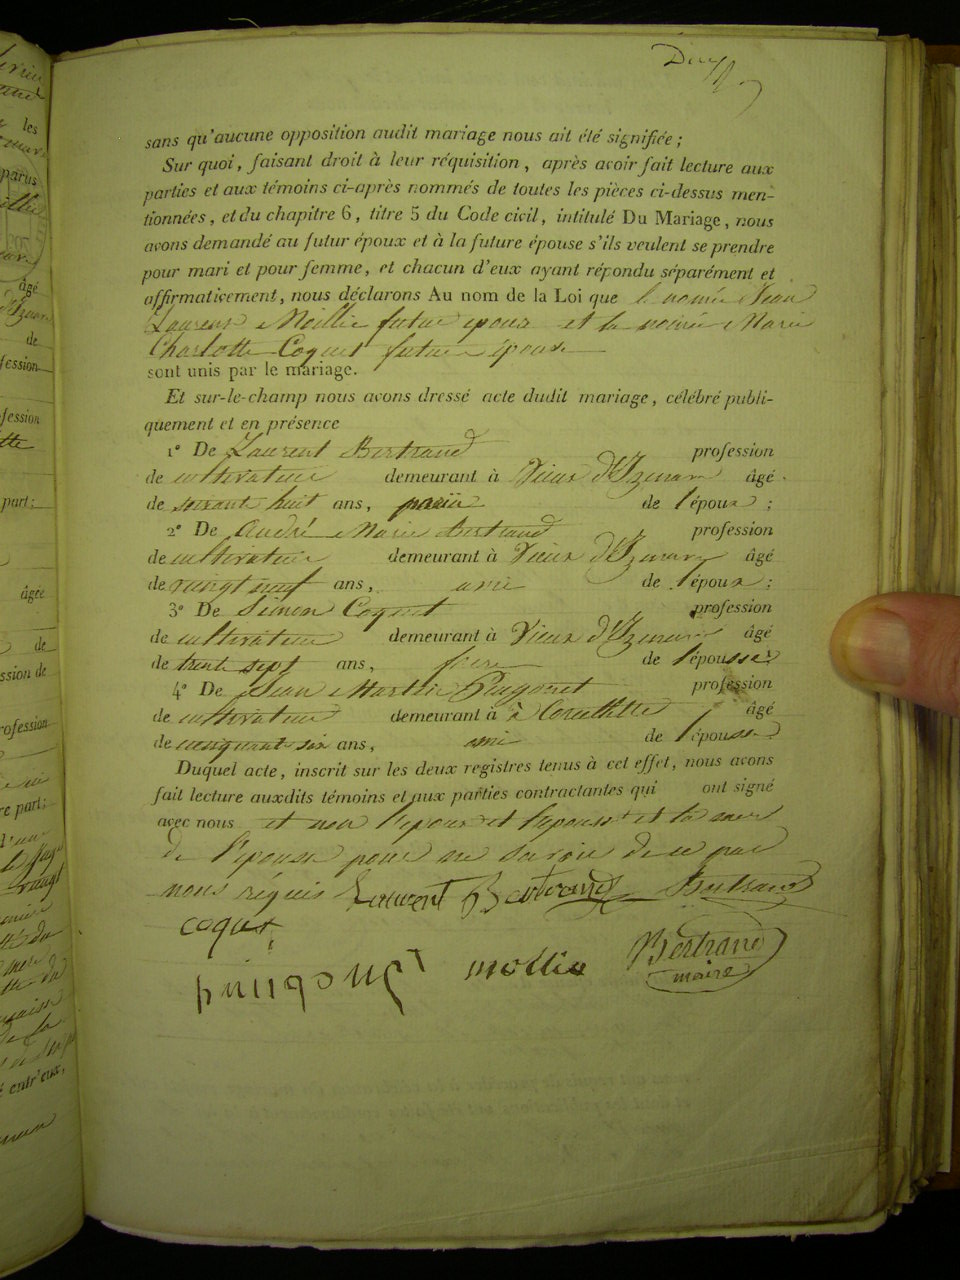 Deux
sans qu'aucune opposition audit mariage nous ait été signifiée ;
Sur quoi, faisant droit à leur réquisition, après avoir fait lecture aux
parties et aux témoins ci-après nommés de toutes les pièces ci-dessus men-
tionnées, et du chapitre 6, titre 5 du Code civil, intitulé Du Mariage, nous
avons demandé au futur époux et à la future épouse s'ils veulent se prendre
pour mari et pour femme, et chacun d'eux ayant répondu séparément et
affirmativement, nous déclarons Au nom de la Loi que le nomé Jean
Laurent Mollie futur epoux et la nomée Marie
Charlotte Coquet future épouse
sont unis par le mariage.
Et sur-le-champ nous avons dressé acte dudit mariage, célébré publi-
quement et en présence
1° De Laurent Bertrand profession
de cultivateur demeurant à Vieux d'Izenave âgé
de soixante huit ans, de l'époux ;
2° De André Marie Bertrand profession
de cultivateur demeurant à Vieux d'Izenave âgé
de vingt neuf ans, ami de l'époux ;
3° De Simon Coquet profession
de cultivateur demeurant à Vieux d'Izenave âgé
de trente sept ans, frere de l'épousse ;
4° De Jean Marthe Pingonet profession
de cultivateur demeurant à à Corcellette âgé
de cinquante six ans, ami de l'épousse
Duquel acte, inscrit sur les deux registres tenus à cet effet, nous avons
fait lecture auxdits témoins et aux parties contractantes qui ont signé
avec nous et non l'epoux et l'epousse et la mere
de l'epousse pour ne savoir de ce par
nous réquis Laurent Bertrand Bertrand
coquet
pingonet mollie Bertrand
maire